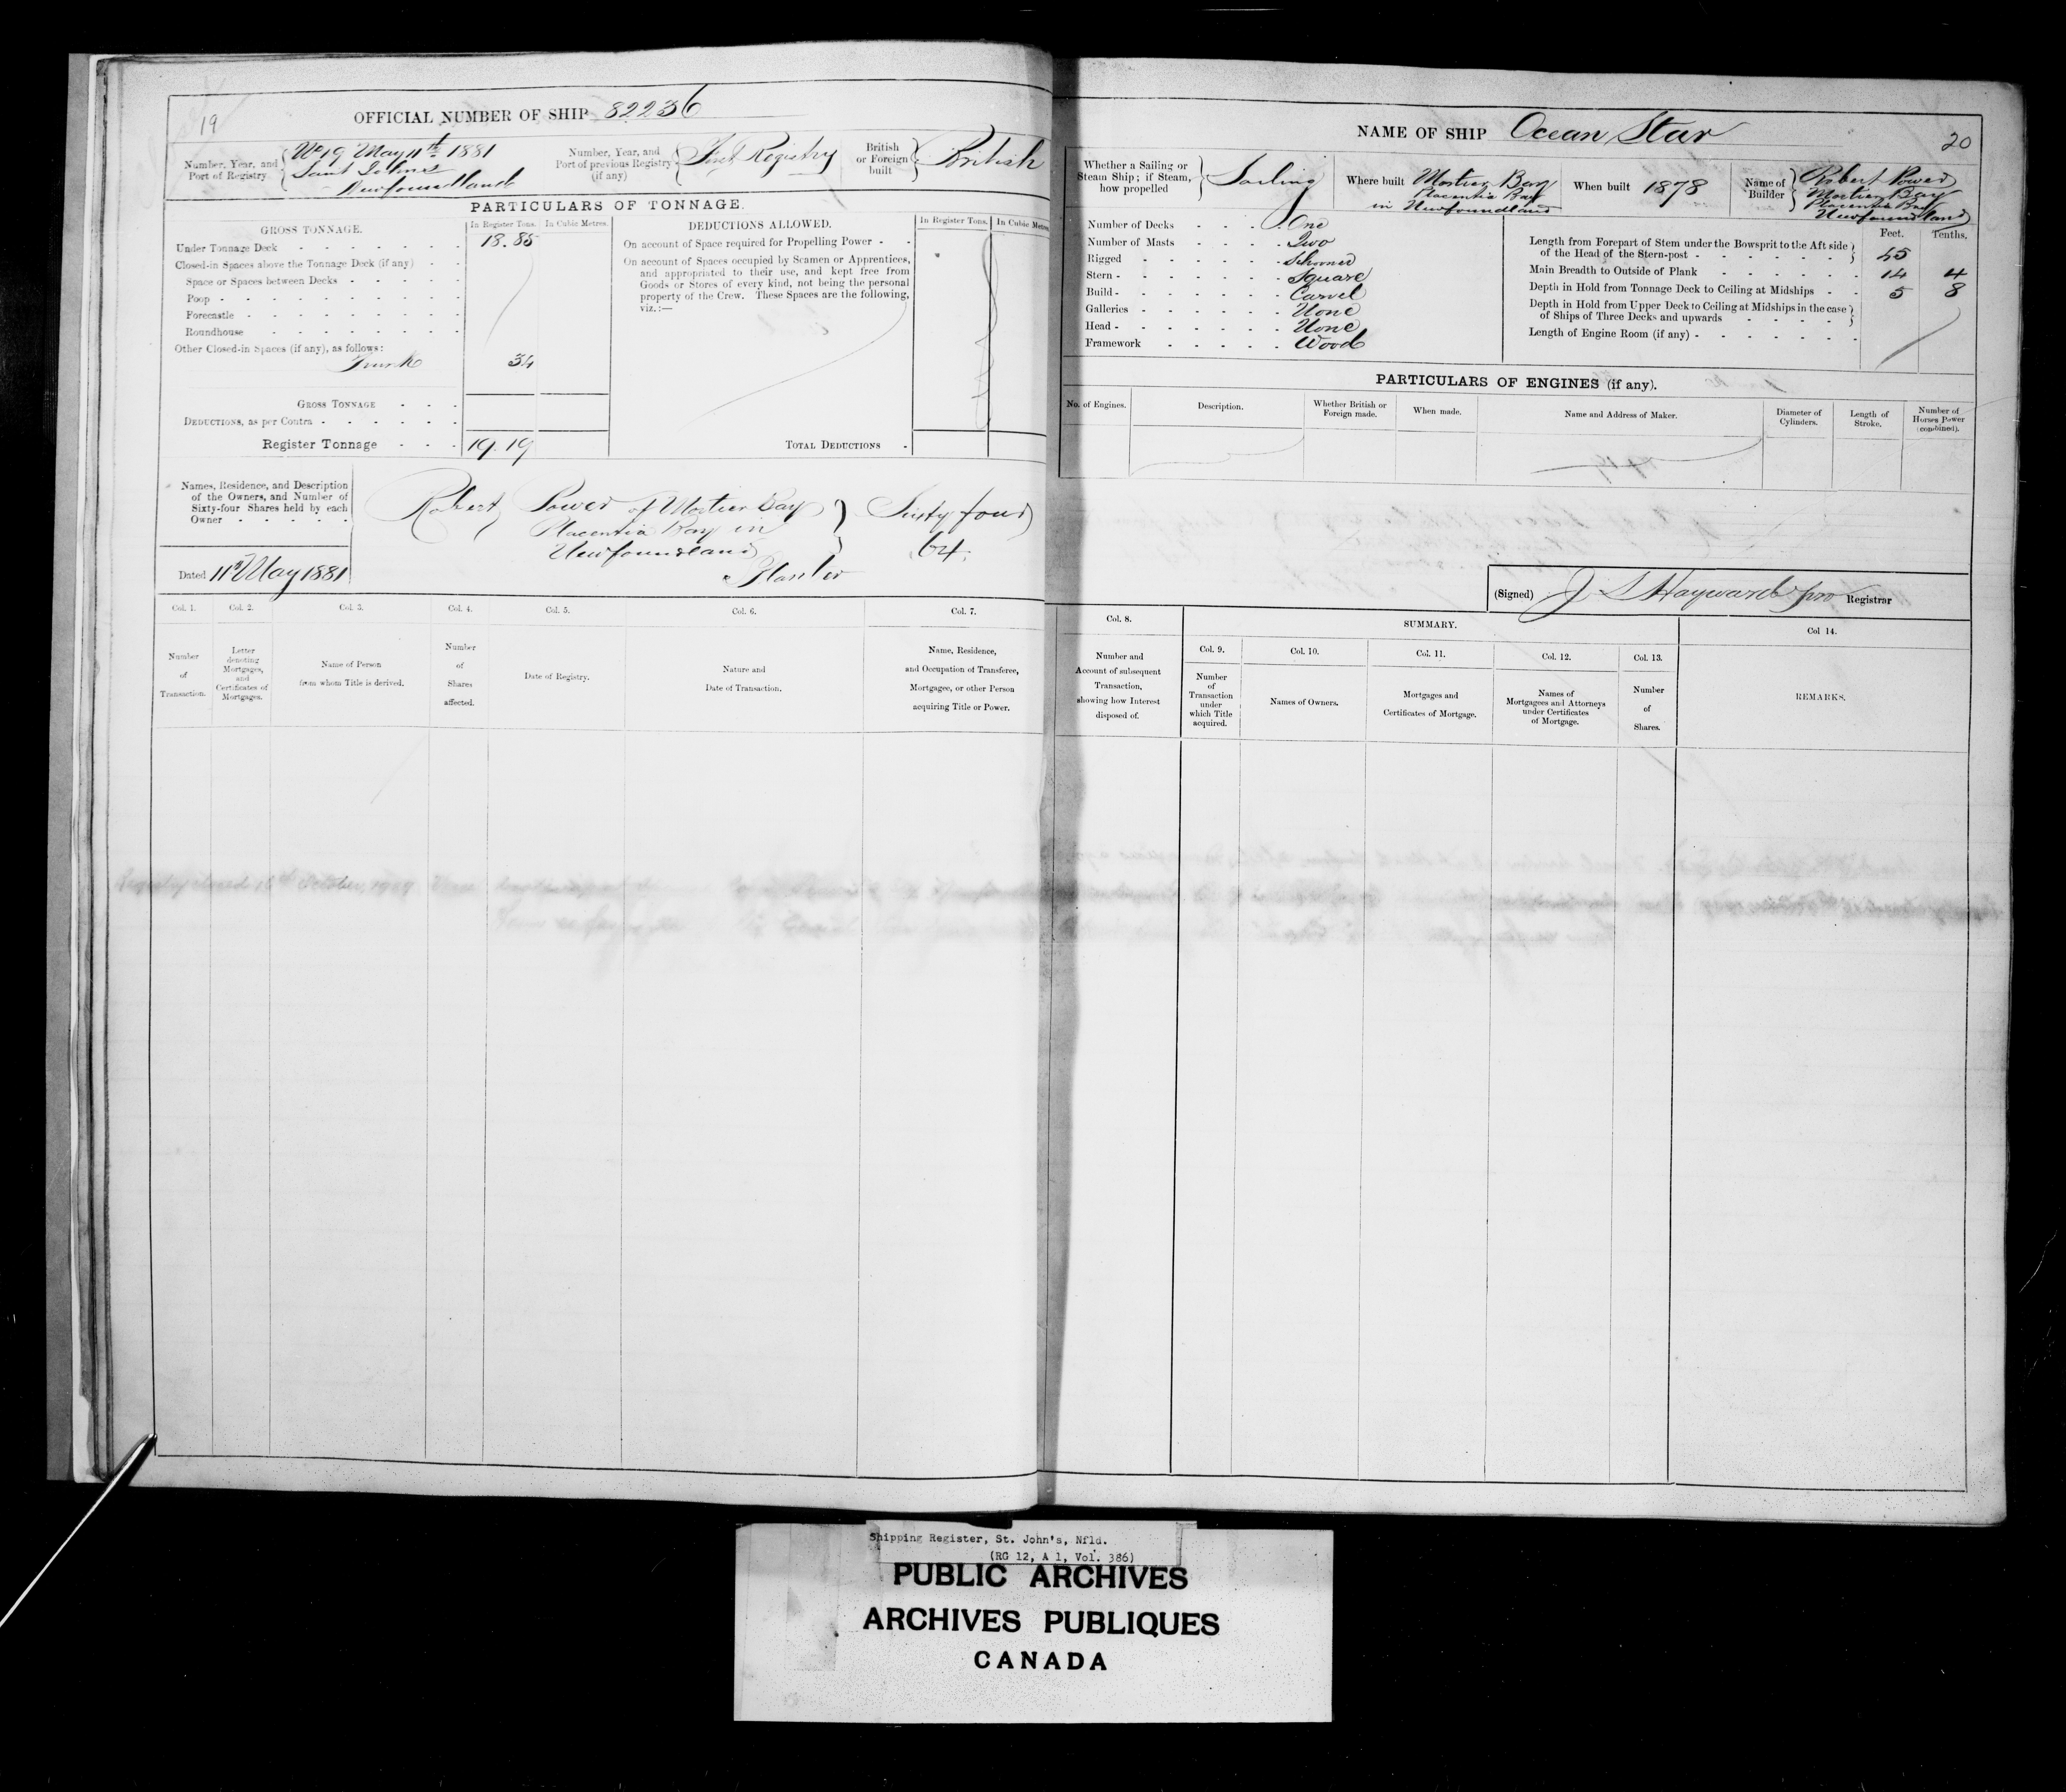 19
OFFICIAL NUMBER OF SHIP 82236
Number, Year, and Port of Registry
No 19 May 11th 1881
Saint Johns
Newfoundland
Number, Year, and Port of previous Registry (if any)
First Registry
British or Foreign built
British
PARTICULARS OF TONNAGE.
GROSS TONNAGE.
In Register Tons.
In Cubic Metres.
Under Tonnage Deck 18.85
Closed-in Spaces above the Tonnage Deck (if any)
Space or Spaces between Decks
Poop
Forecastle
Roundhouse
Other Closed-in Spaces (if any), as follows:
Trunk 34
GROSS TONNAGE
DEDUCTIONS, as per Contra
Register Tonnage 19.19
DEDUCTIONS ALLOWED.
In Register Tons.
In Cubic Metres
On account of Space required for Propelling Power
On account of Spaces occupied by Seamen or Apprentices,
and appropriated to their use, and kept free from
Goods or Stores of every kind, not being the personal
property of the Crew. These Spaces are the following,
viz.:—
TOTAL DEDUCTIONS
Names, Residence, and Description
of the Owners, and Number of
Sixty-four Shares held by each
Owner
Robert Power of Mortier Bay
Placentia Bay in
Newfoundland
Planter
Sixty four
64.
Dated 11th May 1881
Col. 1.
Number
of
Transaction.
Col. 2.
Letter
denoting
Mortgages,
and
Certificates of
Mortgages.
Col. 3.
Name of Person
from whom Title is derived.
Col. 4.
Number
of
Shares
affected.
Col. 5.
Date of Registry.
Col. 6.
Nature and
Date of Transaction.
Col. 7.
Name, Residence,
and Occupation of Transferee,
Mortgagee, or other Person
acquiring Title or Power.
Registry closed October, 1909
NAME OF SHIP Ocean Star
20
Whether a Sailing or
Steam Ship; if Steam,
how propelled
Sailing
Where built
Mortier Bay
Placentia Bay
in Newfoundland
When built 1878
Name of
Builder
Robert Power
Mortier Bay
Placentia Bay
Newfoundland
Number of Decks One
Number of Masts Two
Rigged Schooner
Stern Square
Build Carvel
Galleries None
Head None
Framework Wood
Feet. Tenths.
Length from Forepart of Stem under the Bowsprit to the Aft side
of the Head of the Stern-post 45
Main Breadth to Outside of Plank 14 4
Depth in Hold from Tonnage Deck to Ceiling at Midships 5 8
Depth in Hold from Upper Deck to Ceiling at Midships in the case
of Ships of Three Decks and upwards
Length of Engine Room (if any)
PARTICULARS OF ENGINES (if any).
No. of Engines.
Description.
Whether British or
Foreign made.
When made.
Name and Address of Maker.
Diameter of
Cylinders.
Length of
Stroke.
Number of
Horses Power
(combined).
(Signed) J S Hayward pro Registrar
Col. 8.
Number and
Account of subsequent
Transaction,
showing how Interest
disposed of.
SUMMARY.
Col. 9.
Number
of
Transaction
under
which Title
acquired.
Col. 10.
Names of Owners.
Col. 11.
Mortgages and
Certificates of Mortgage.
Col. 12.
Names of
Mortgagees and Attorneys
under Certificates
of Mortgage.
Col. 13.
Number
of
Shares.
Col 14.
REMARKS.
Shipping Register, St. John's, Nfld.
(RG 12, A 1, Vol. 386)
PUBLIC ARCHIVES
ARCHIVES PUBLIQUES
CANADA